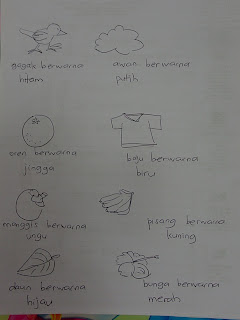 gagak berwarna
hitam
awan berwarna
putih
oren berwarna
jingga
baju berwarna
biru
manggis berwarna
ungu
pisang berwarna
kuning
daun berwarna
hijau
bunga berwarna
merah